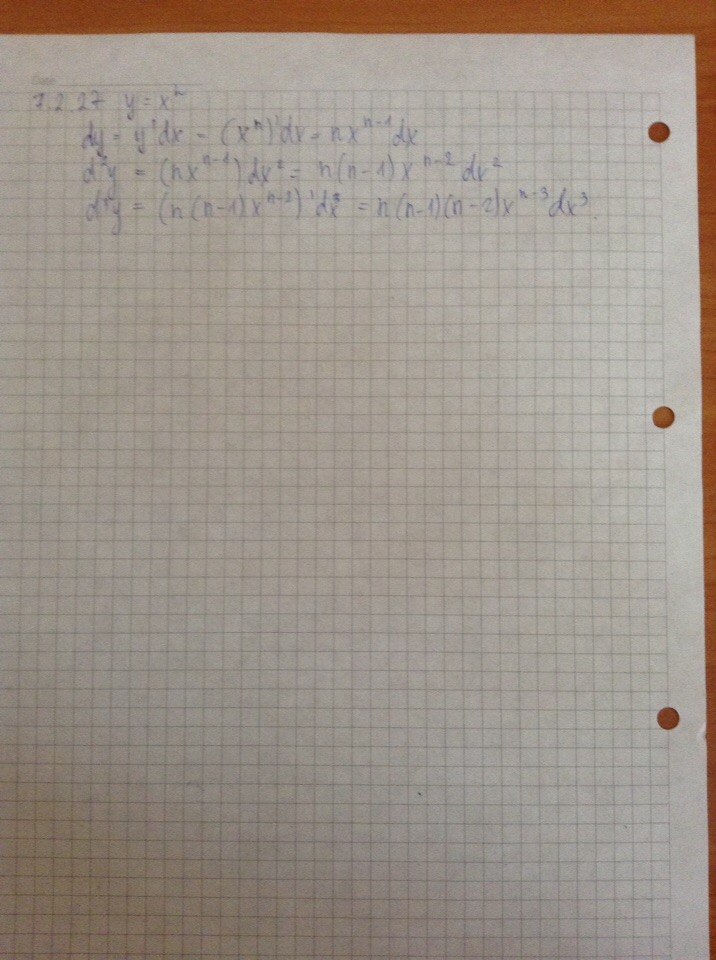 Date
7.2.27 y = xⁿ
dy = y'dx = (xⁿ)'dx = nxⁿ⁻¹dx
d²y = (nxⁿ⁻¹)'dx² = n(n-1)xⁿ⁻²dx²
d³y = (n(n-1)xⁿ⁻²)'dx³ = n(n-1)(n-2)xⁿ⁻³dx³.